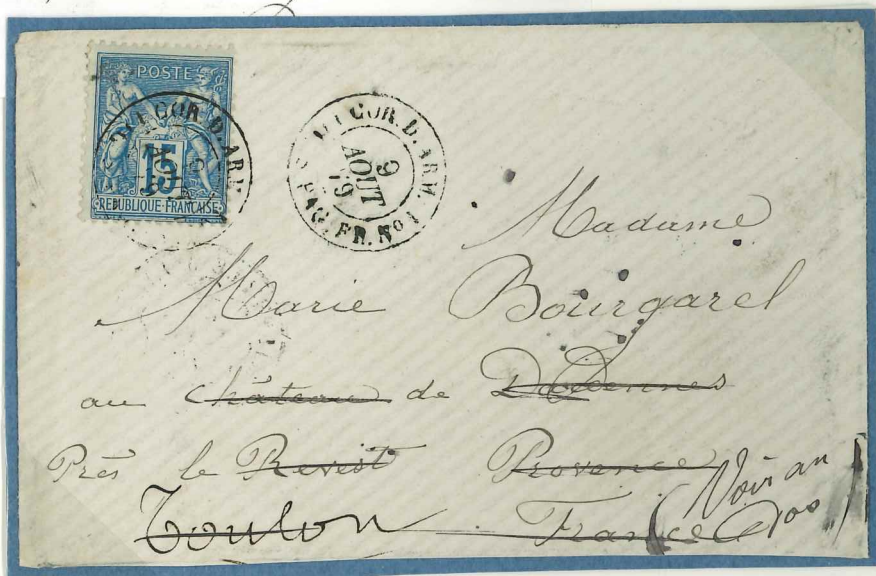 POSTE
15
REPUBLIQUE FRANÇAISE
COR. D. ARM.
COR. D. ARM.
9
AOUT
79
PAQ. FR. No 1
Madame
Marie Bourgarel
au château de Dardennes
Près le Revest Provence
Toulon France
(Voir au
dos)